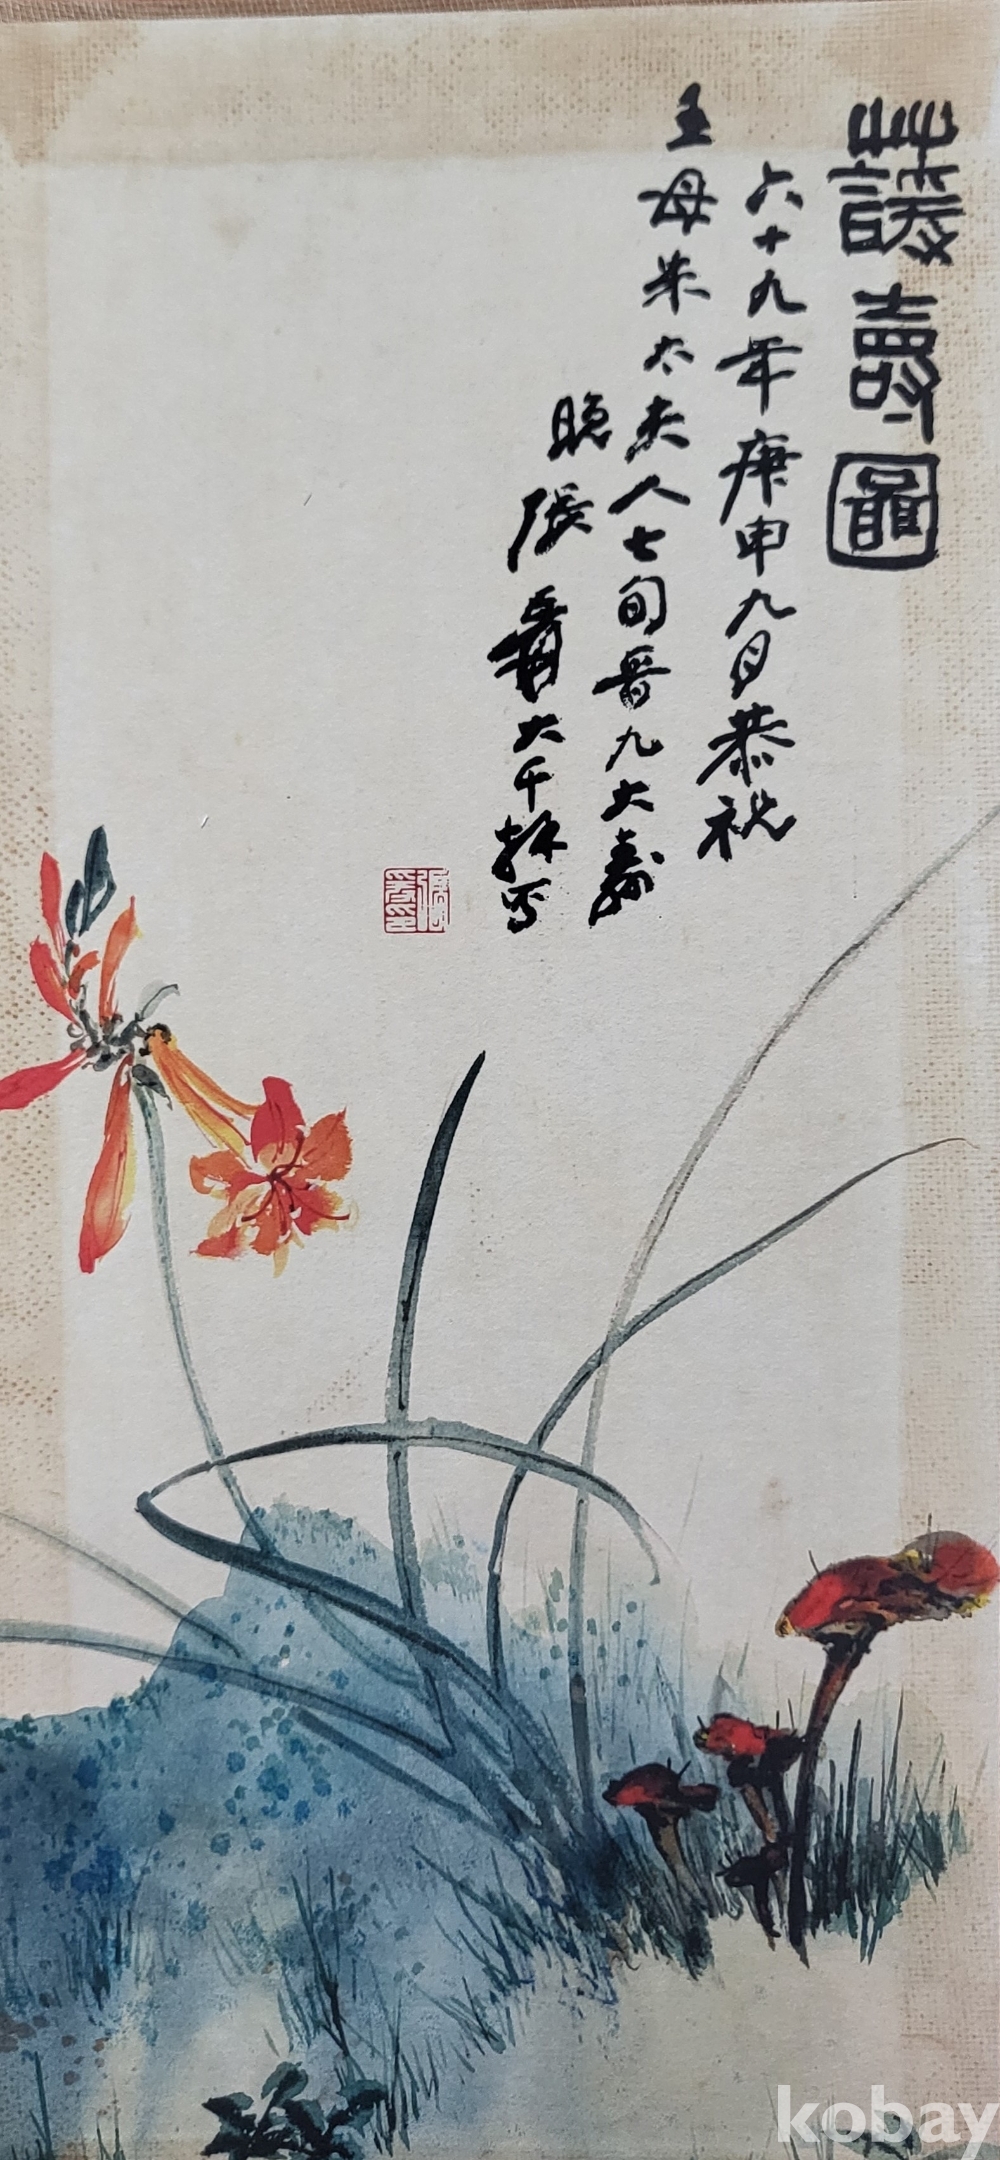 藼壽圖
六十九年庚申九月恭祝
王母朱太夫人七旬晋九大壽
晚張爰大千拜寫
張爰之印
kobay